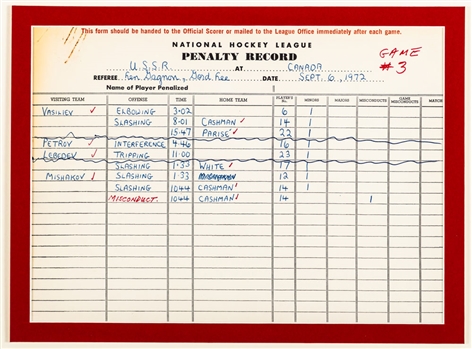 This form should be handed to the Official Scorer or mailed to the League Office immediately after each game.
NATIONAL HOCKEY LEAGUE
PENALTY RECORD
GAME #3
U.S.S.R. AT CANADA
REFEREE Len Gagnon, Gord Lee DATE SEPT. 6, 1972
Name of Player Penalized
VISITING TEAM OFFENSE TIME HOME TEAM PLAYER'S No. MINORS MAJORS MISCONDUCTS GAME MISCONDUCTS MATCH
VASILIEV ✓ ELBOWING 3:02 6 1
SLASHING 8:01 CASHMAN ✓ 14 1
15:47 PARISE ✓ 22 1
PETROV ✓ INTERFERENCE 4:46 16 1
LEBEDEV ✓ TRIPPING 11:00 23 1
SLASHING 1:33 WHITE ✓ 17 1
MISHAKOV ✓ SLASHING 1:33 12 1
SLASHING 1044 CASHMAN ✓ 14 1
MISCONDUCT 1044 CASHMAN ✓ 14 1